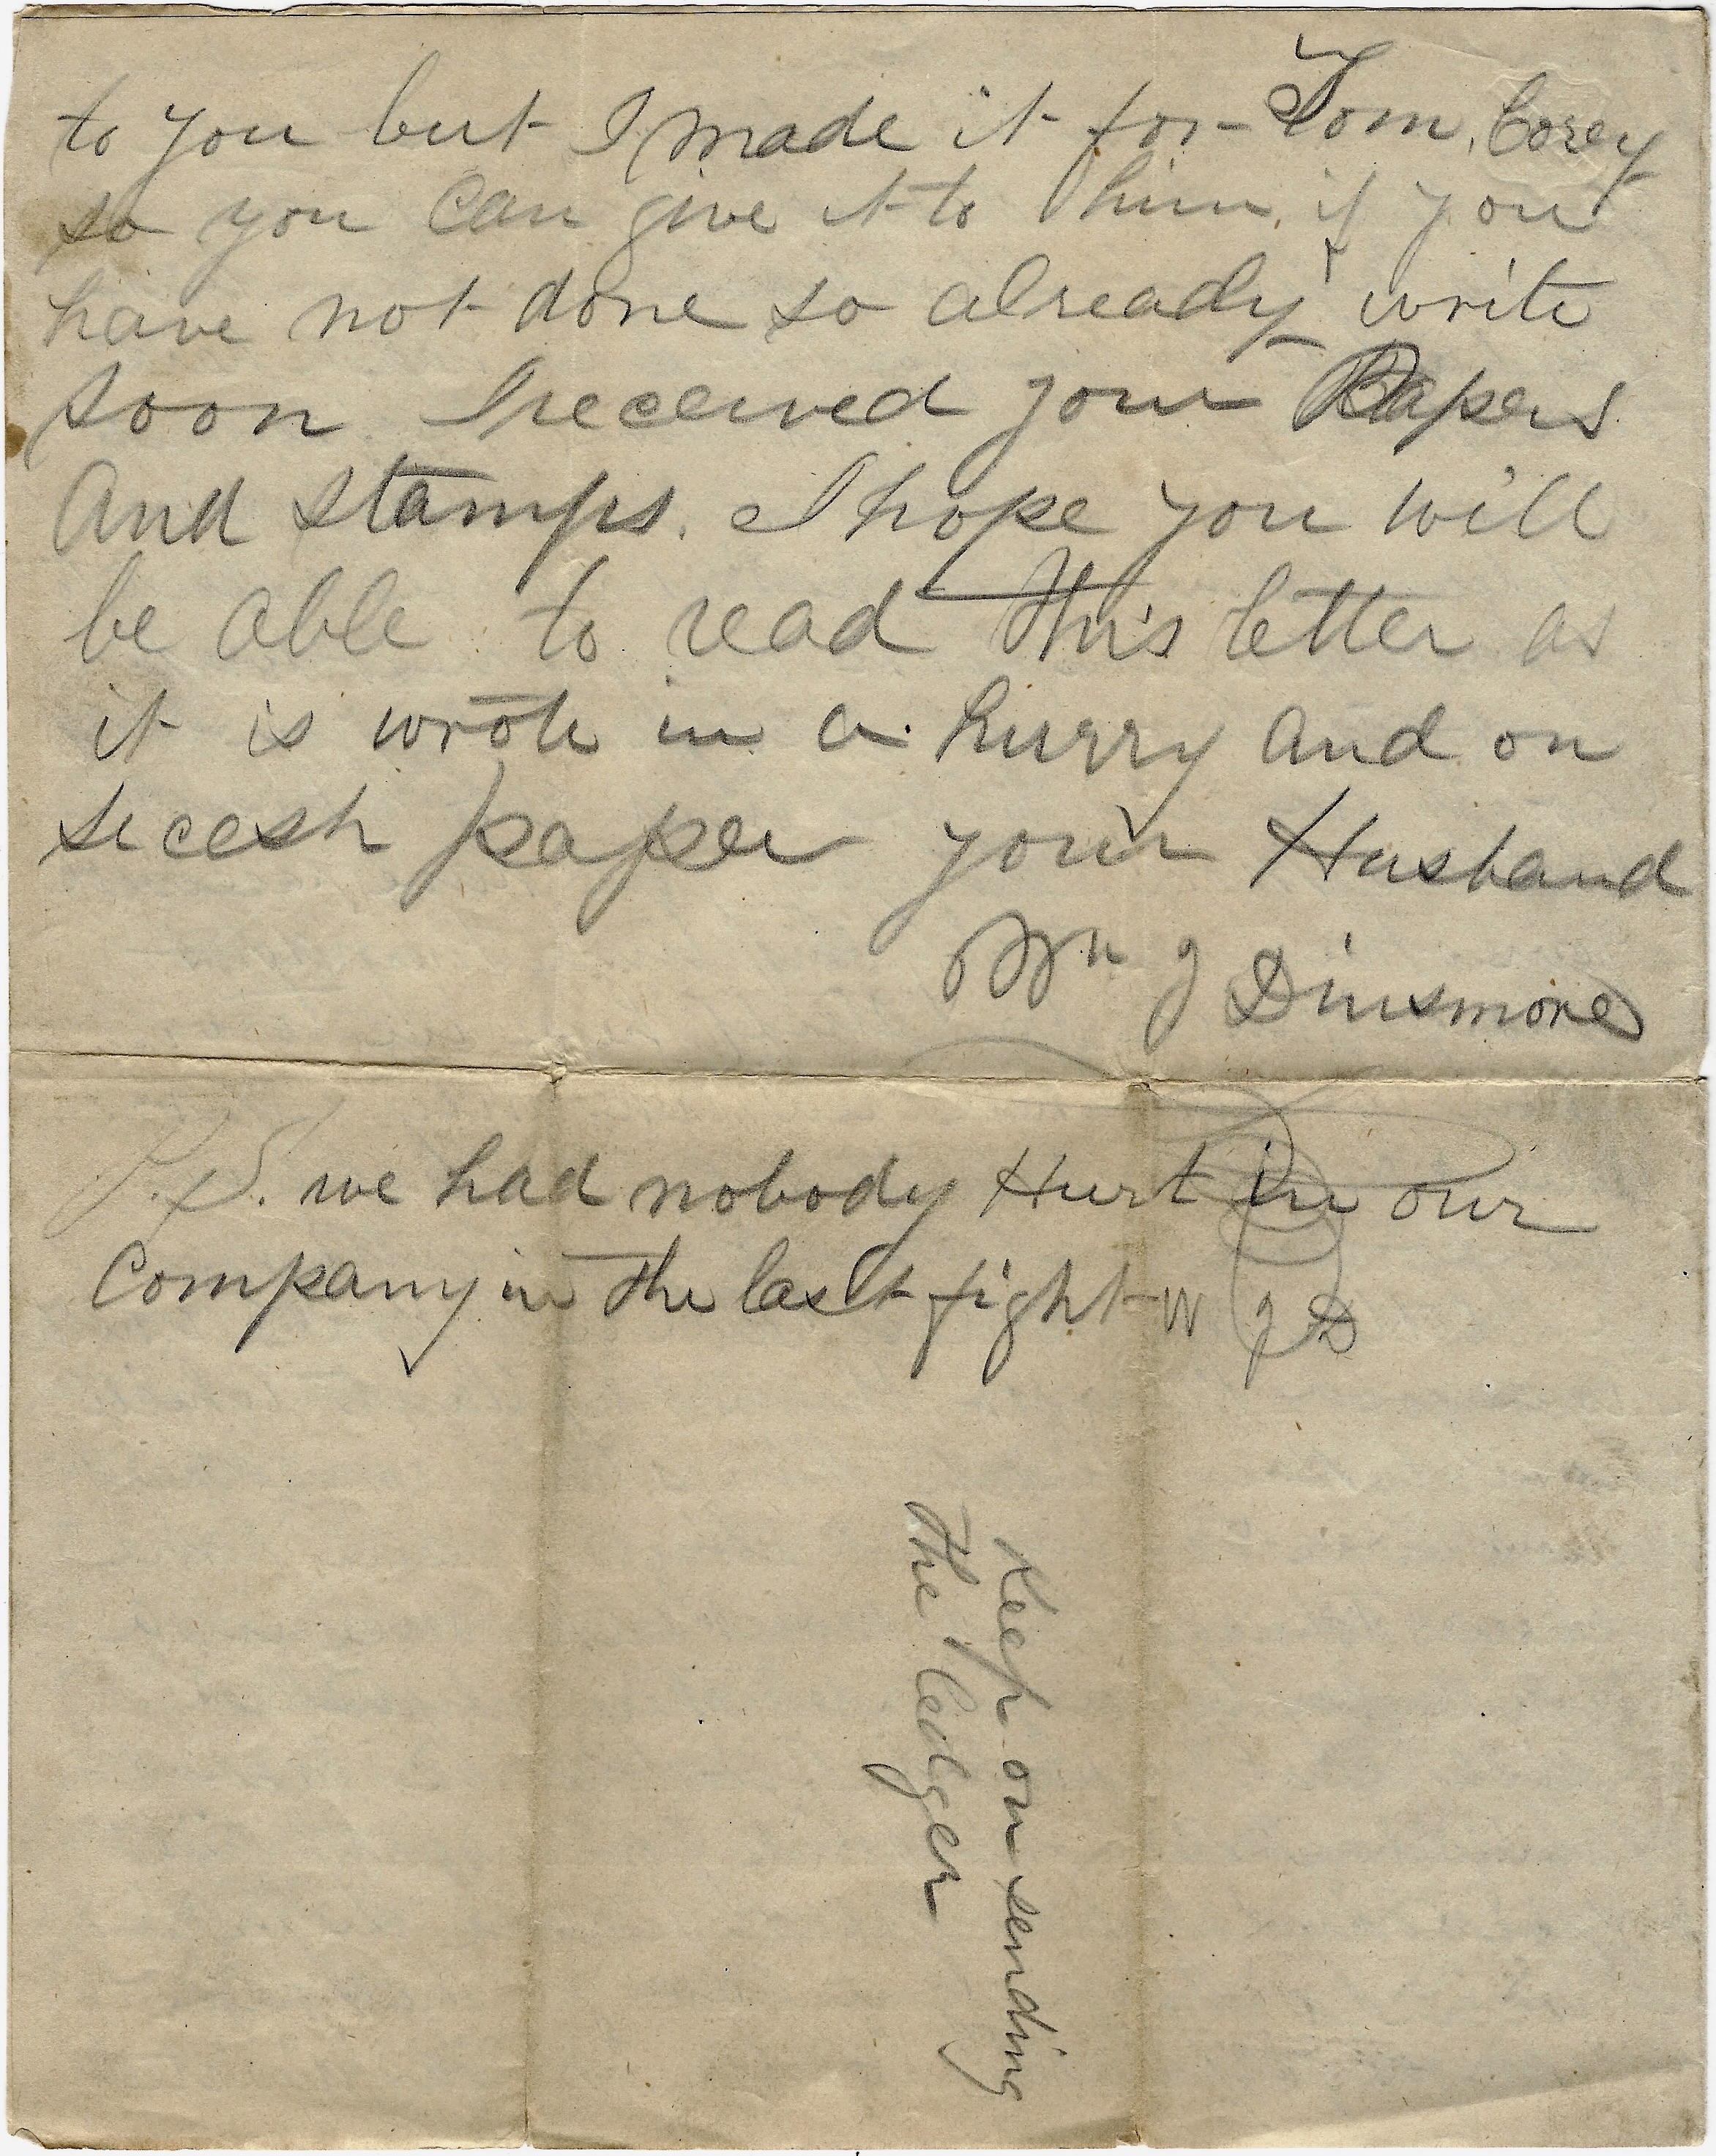 to you but I made it for Tom. Corey
so you can give it to him. if you
have not done so already write
soon. I received your Papers
And stamps. I hope you will
be able to read this letter as
it is wrote in a hurry and on
secesh paper your Husband
Wm J Dinsmore
P.S. we had nobody Hurt in our
Company in the last fight W J D
Keep on sending
The ledger